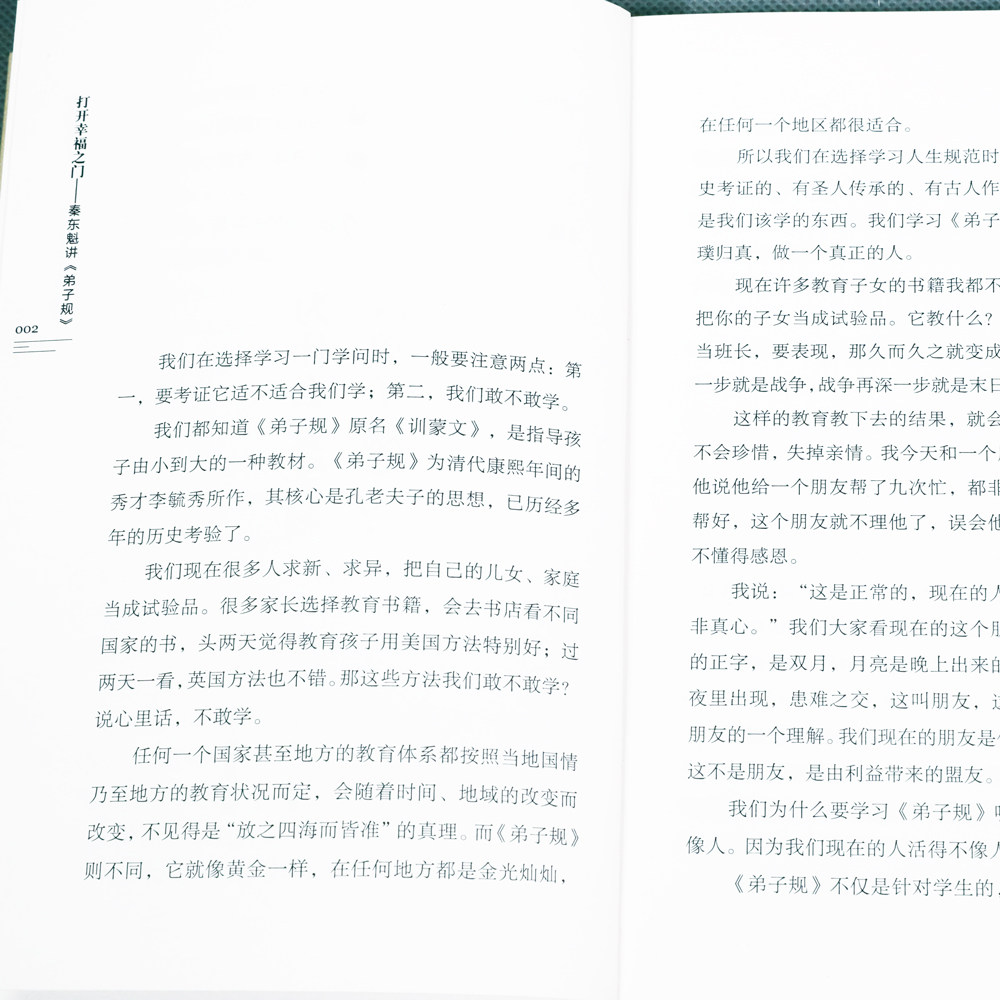 打开幸福之门——秦东魁讲《弟子规》
002
我们在选择学习一门学问时，一般要注意两点：第
一，要考证它适不适合我们学；第二，我们敢不敢学。
我们都知道《弟子规》原名《训蒙文》，是指导孩
子由小到大的一种教材。《弟子规》为清代康熙年间的
秀才李毓秀所作，其核心是孔老夫子的思想，已历经多
年的历史考验了。
我们现在很多人求新、求异，把自己的儿女、家庭
当成试验品。很多家长选择教育书籍，会去书店看不同
国家的书，头两天觉得教育孩子用美国方法特别好；过
两天一看，英国方法也不错。那这些方法我们敢不敢学？
说心里话，不敢学。
任何一个国家甚至地方的教育体系都按照当地国情
乃至地方的教育状况而定，会随着时间、地域的改变而
改变，不见得是“放之四海而皆准”的真理。而《弟子规》
则不同，它就像黄金一样，在任何地方都是金光灿灿，
在任何一个地区都很适合。
所以我们在选择学习人生规范时
史考证的、有圣人传承的、有古人作
是我们该学的东西。我们学习《弟子
璞归真，做一个真正的人。
现在许多教育子女的书籍我都不
把你的子女当成试验品。它教什么？
当班长，要表现，那久而久之就变成
一步就是战争，战争再深一步就是末日
这样的教育教下去的结果，就会
不会珍惜，失掉亲情。我今天和一个
他说他给一个朋友帮了九次忙，都非
帮好，这个朋友就不理他了，误会他
不懂得感恩。
我说：“这是正常的，现在的人
非真心。”我们大家看现在的这个朋
的正字，是双月，月亮是晚上出来的
夜里出现，患难之交，这叫朋友，这
朋友的一个理解。我们现在的朋友是
这不是朋友，是由利益带来的盟友。
我们为什么要学习《弟子规》呢
像人。因为我们现在的人活得不像人
《弟子规》不仅是针对学生的，